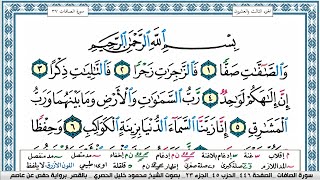 سورة الصافات ٣٧
الجزء الثالث والعشرون
بِسْمِ اللَّهِ الرَّحْمَٰنِ الرَّحِيمِ
وَالصَّافَّاتِ صَفًّا ١ فَالزَّاجِرَاتِ زَجْرًا ٢ فَالتَّالِيَاتِ ذِكْرًا ٣
إِنَّ إِلَٰهَكُمْ لَوَاحِدٌ ٤ رَبُّ السَّمَاوَاتِ وَالْأَرْضِ وَمَا بَيْنَهُمَا وَرَبُّ
الْمَشَارِقِ ٥ إِنَّا زَيَّنَّا السَّمَاءَ الدُّنْيَا بِزِينَةٍ الْكَوَاكِبِ ٦ وَحِفْظًا
سورة الصافات ٣٧ الصفحة ٤٤٦ الآية ٤٥ الجزء ٢٣ بصوت الشيخ محمود خليل الحصري - بالقصر برواية حفص عن عاصم